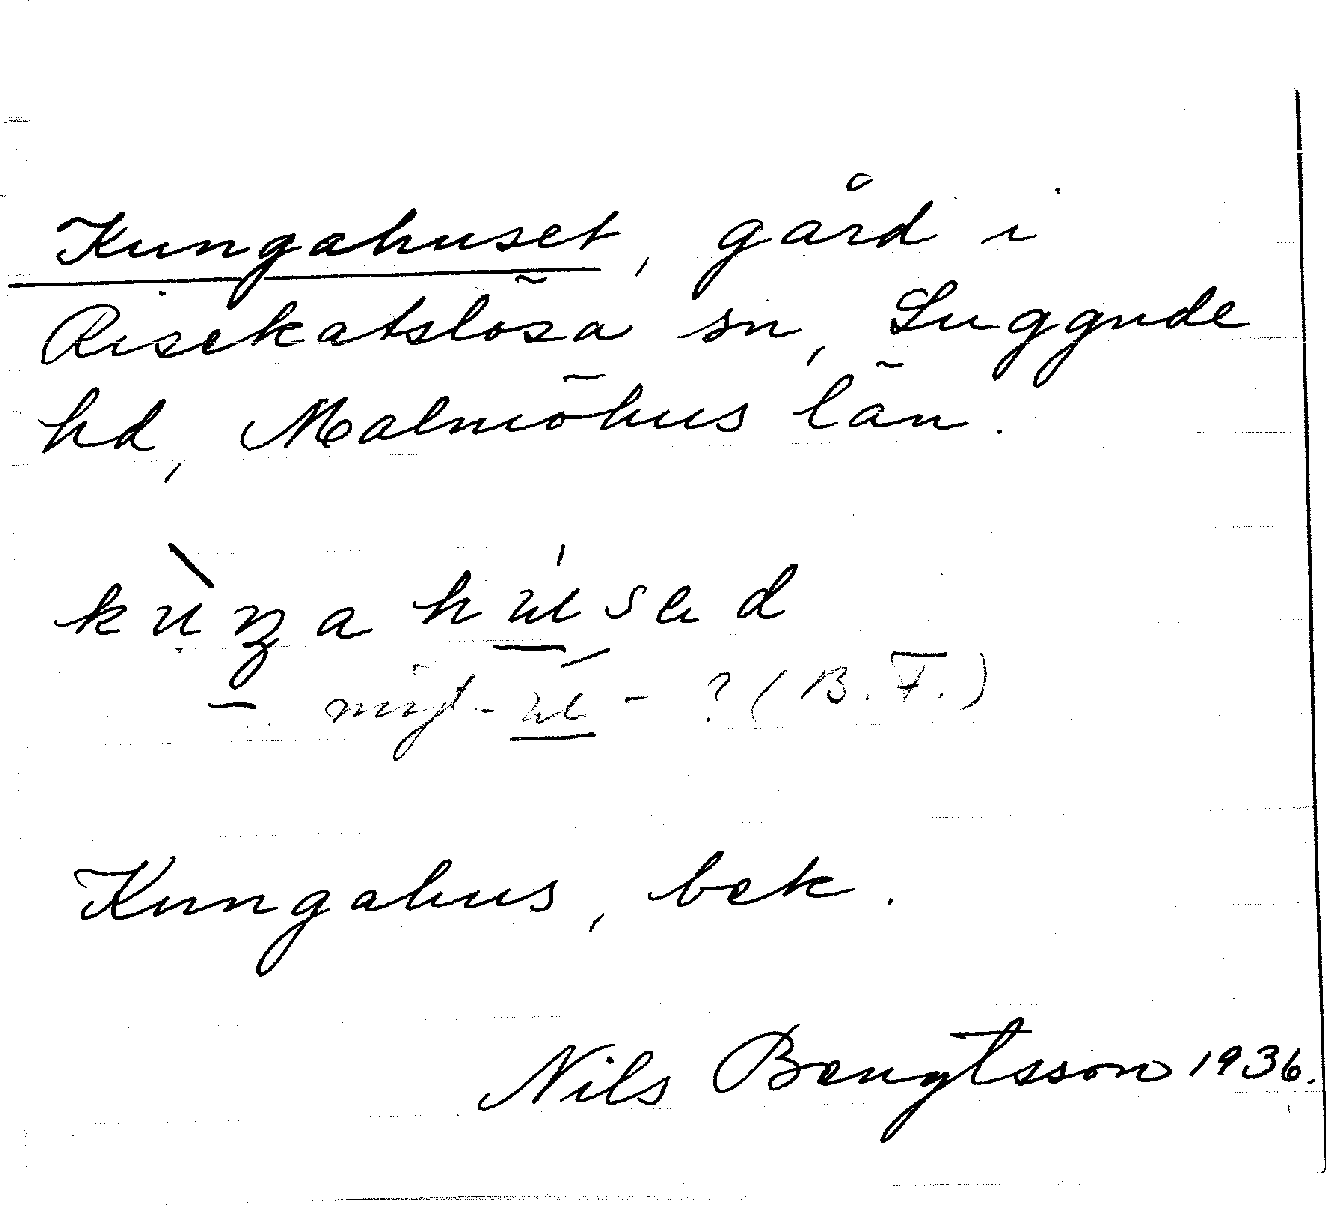 Kungahuset, gård i
Risekatslösa sn, Luggude
hd, Malmöhus län.
kùŋa húsed
Kungahus, bek.
Nils Bengtsson 1936.